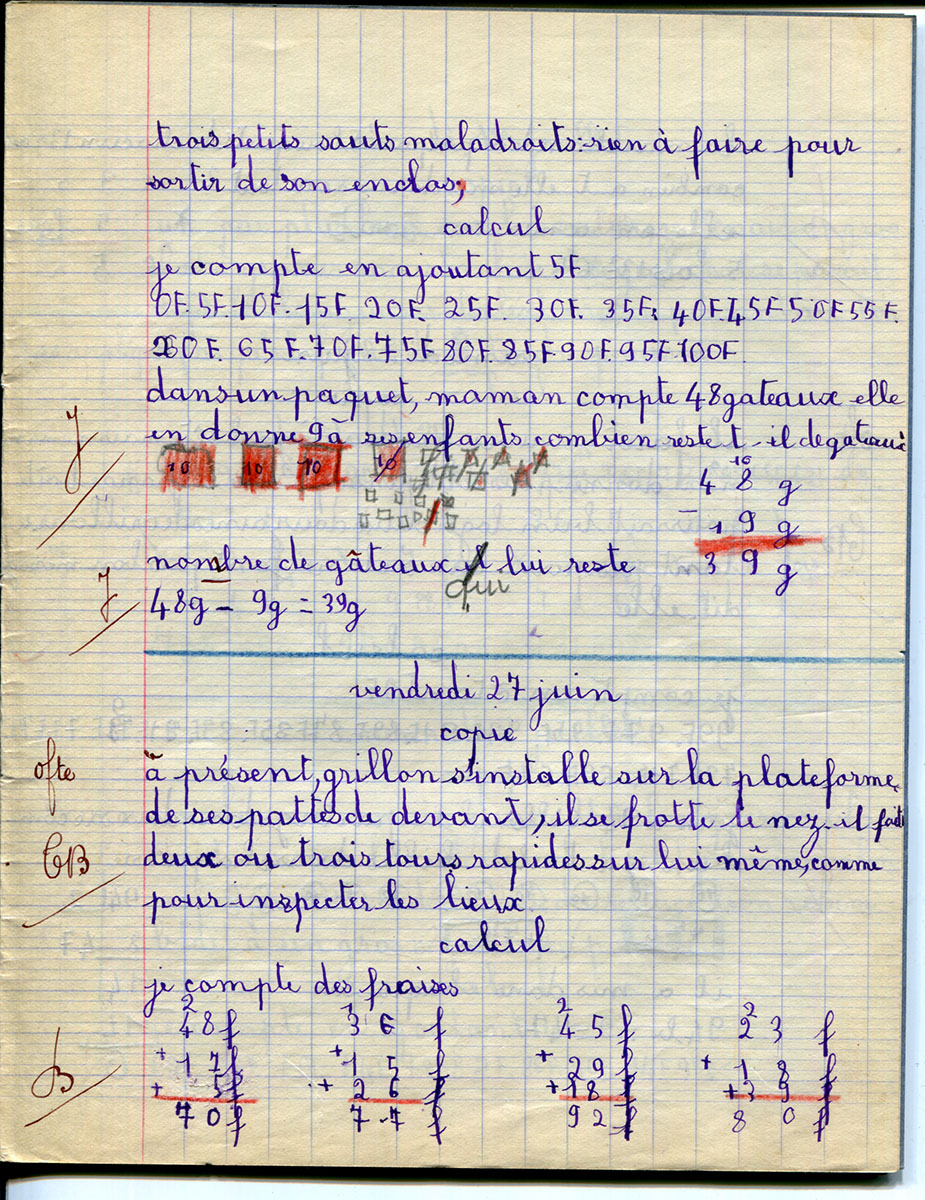 trois petits sauts maladroits: rien à faire pour
sortir de son enclos;
calcul
je compte en ajoutant 5F
0F. 5F. 10F. 15F. 20F. 25F. 30F. 35F. 40F. 45F 50F 55F.
60F. 65F. 70F. 75F. 80F. 85F. 90F. 95F. 100F.
dans un paquet, maman compte 48 gateaux elle
en donne 9 à ses enfants combien reste t-il de gateaux
10 10 10 10
10
4 8 g
- 1 9 g
3 9 g
nombre de gâteaux il lui reste
qui
48g - 9g = 39g
vendredi 27 juin
copie
à présent, grillon s'installe sur la plateforme,
de ses pattes de devant, il se frotte le nez. il fait
TB
deux ou trois tours rapides sur lui même, comme
pour inspecter les lieux.
calcul
je compte des fraises
2 1 2 2
48f 36 f 45f 23 f
+ 17f + 15 f + 29f + 18 f
+ 5f + 26 f + 18f + 39 f
B
70f 77 f 92f 80 f